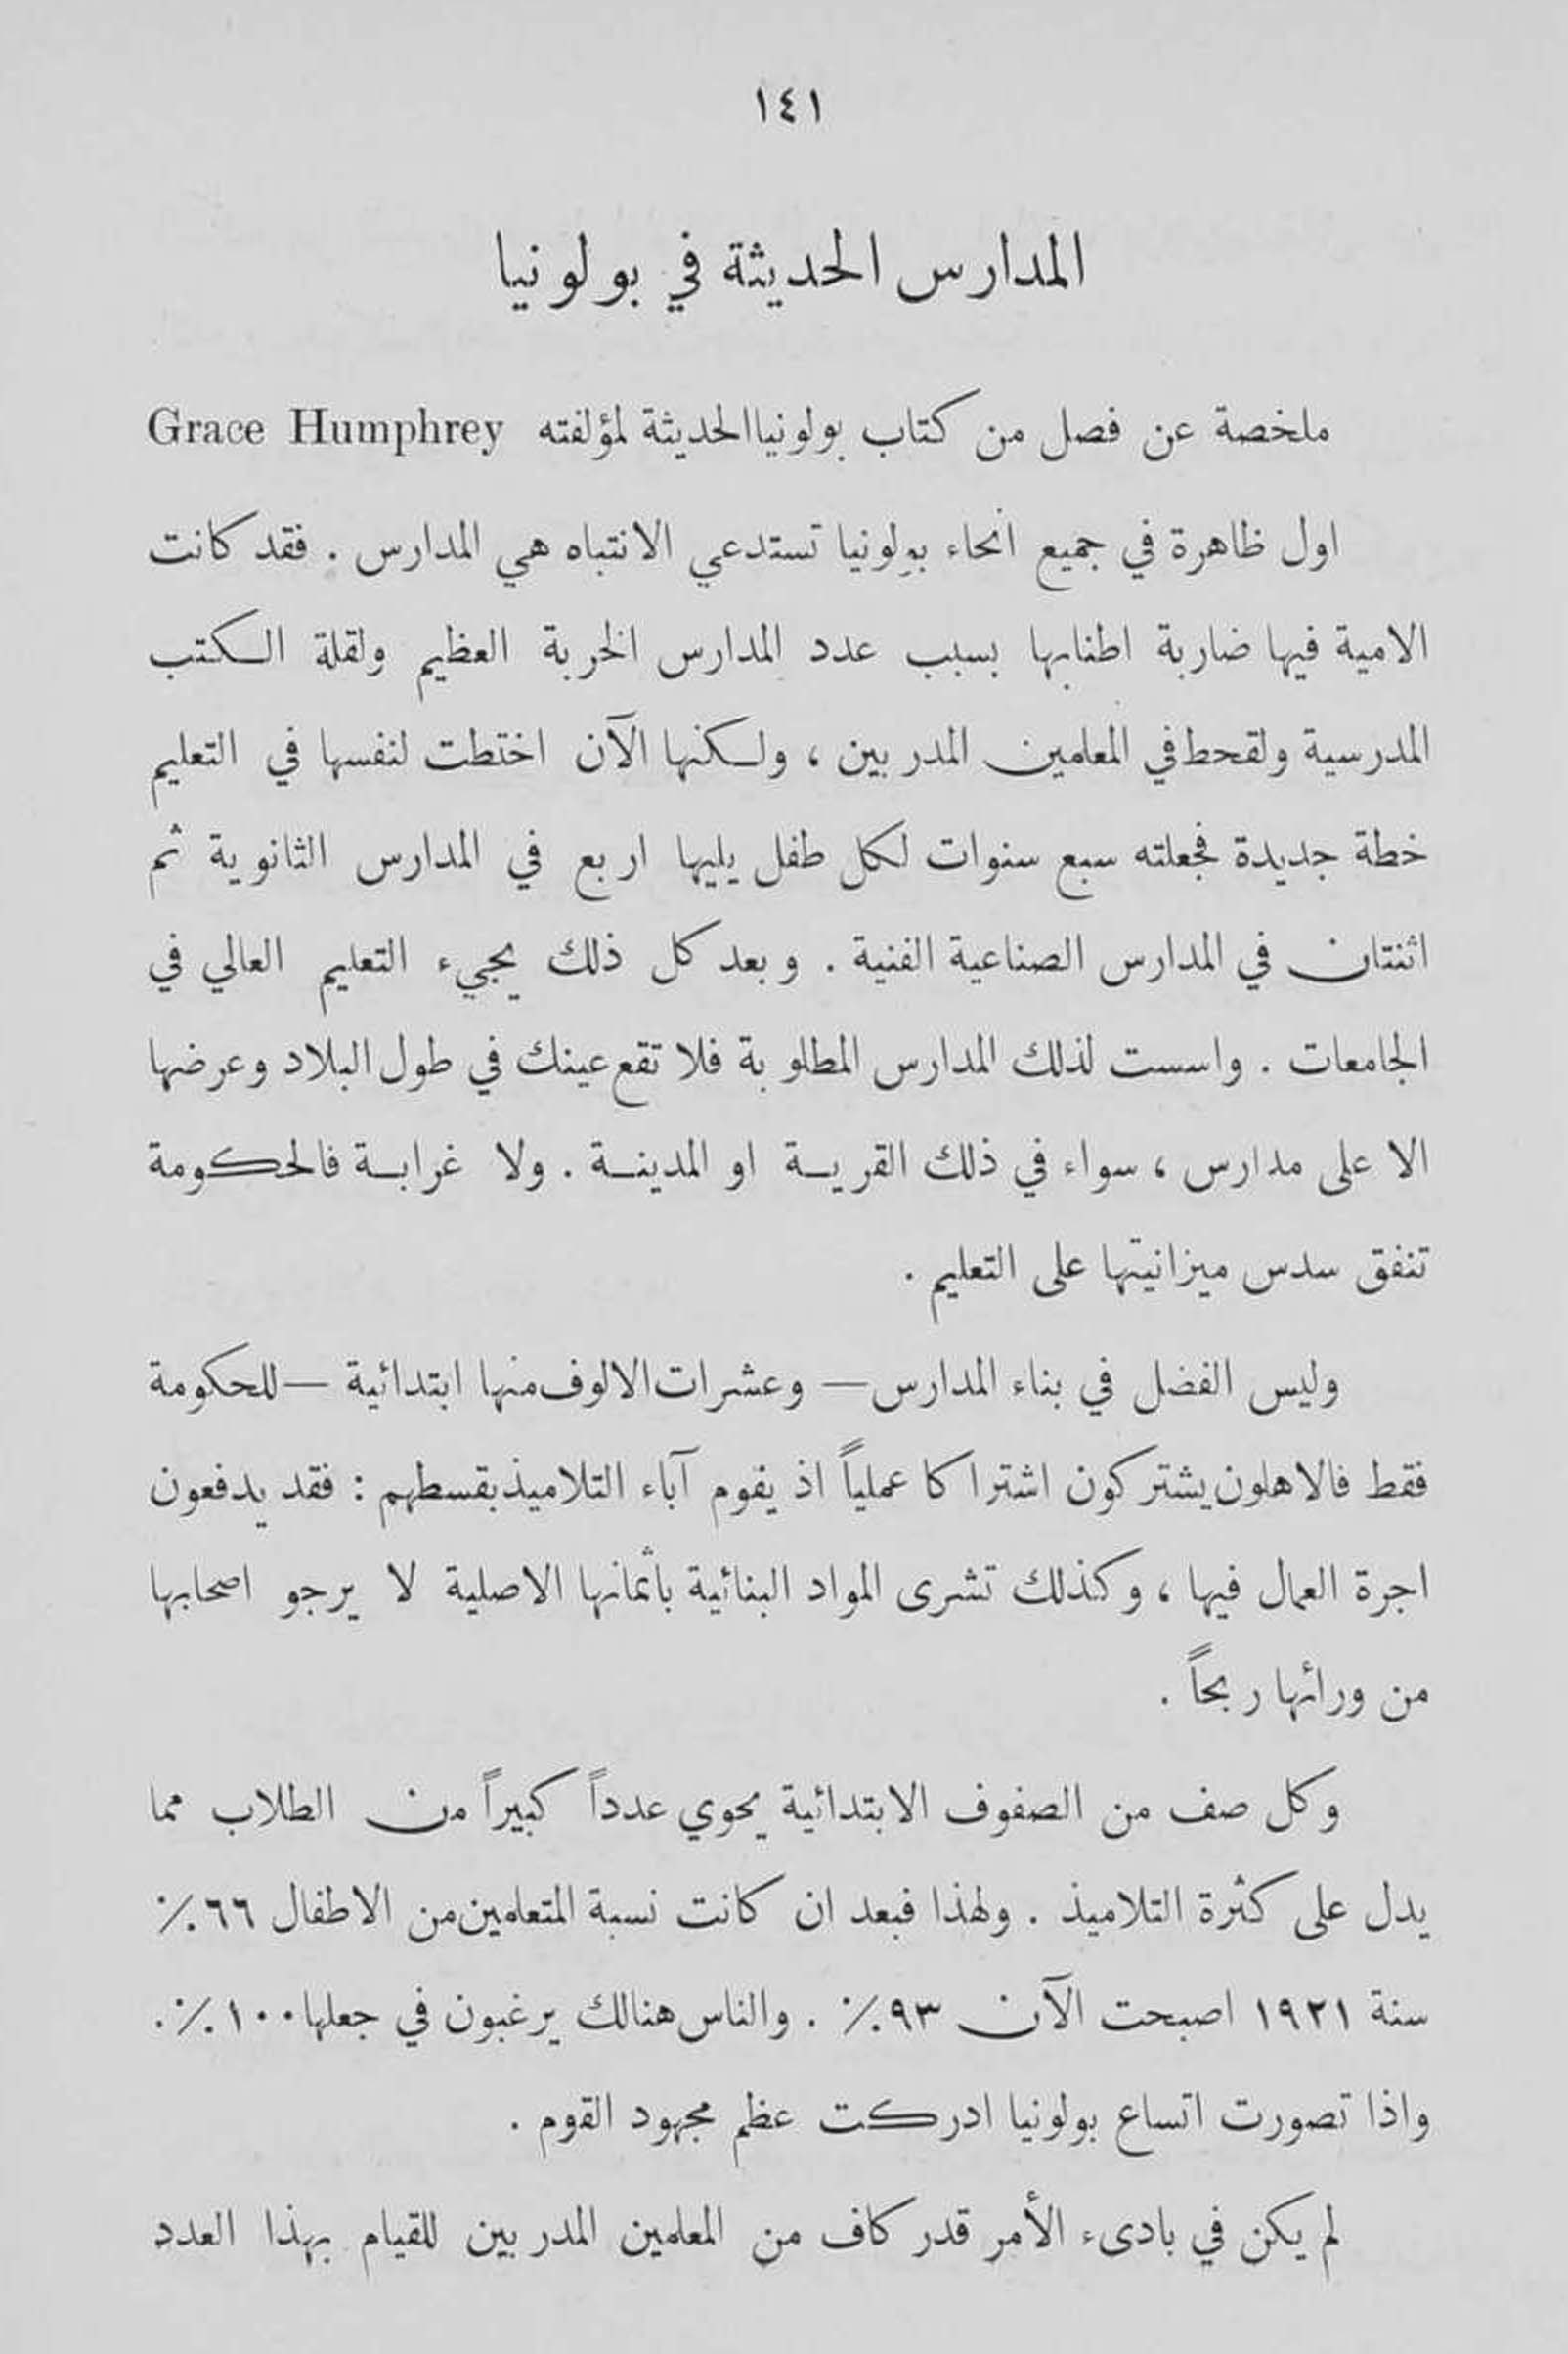 ١٤١
المدارس الحديثة في بولونيا
ملخصة عن فصل من كتاب بولونيا الحديثة لمؤلفته Grace Humphrey
اول ظاهرة في جميع انحاء بولونيا تستدعي الانتباه هي المدارس . فقد كانت
الامية فيها ضاربة اطنابها بسبب عدد المدارس الخربة العظيم ولقلة الكتب
المدرسية ولقحط في المعلمين المدربين ، ولكنها الآن اختطت لنفسها في التعليم
خطة جديدة فجعلته سبع سنوات لكل طفل يليها اربع في المدارس الثانوية ثم
اثنتان في المدارس الصناعية الفنية . وبعد كل ذلك يجيء التعليم العالي في
الجامعات . واسست لذلك المدارس المطلوبة فلا تقع عينك في طول البلاد وعرضها
الا على مدارس ، سواء في ذلك القرية او المدينة . ولا غرابة فالحكومة
تنفق سدس ميزانيتها على التعليم .
وليس الفضل في بناء المدارس — وعشرات الالوف منها ابتدائية — للحكومة
فقط فالاهلون يشتركون اشتراكا عملياً اذ يقوم آباء التلاميذ بقسطهم : فقد يدفعون
اجرة العمال فيها ، وكذلك تشرى المواد البنائية باثمانها الاصلية لا يرجو اصحابها
من ورائها ربحاً .
وكل صف من الصفوف الابتدائية يحوي عدداً كبيراً من الطلاب مما
يدل على كثرة التلاميذ . ولهذا فبعد ان كانت نسبة المتعلمين من الاطفال ٦٦٪
سنة ١٩٢١ اصبحت الآن ٩٣٪ . والناس هنالك يرغبون في جعلها ١٠٠٪ .
واذا تصورت اتساع بولونيا ادركت عظم مجهود القوم .
لم يكن في بادىء الأمر قدر كاف من المعلمين المدربين للقيام بهذا العدد